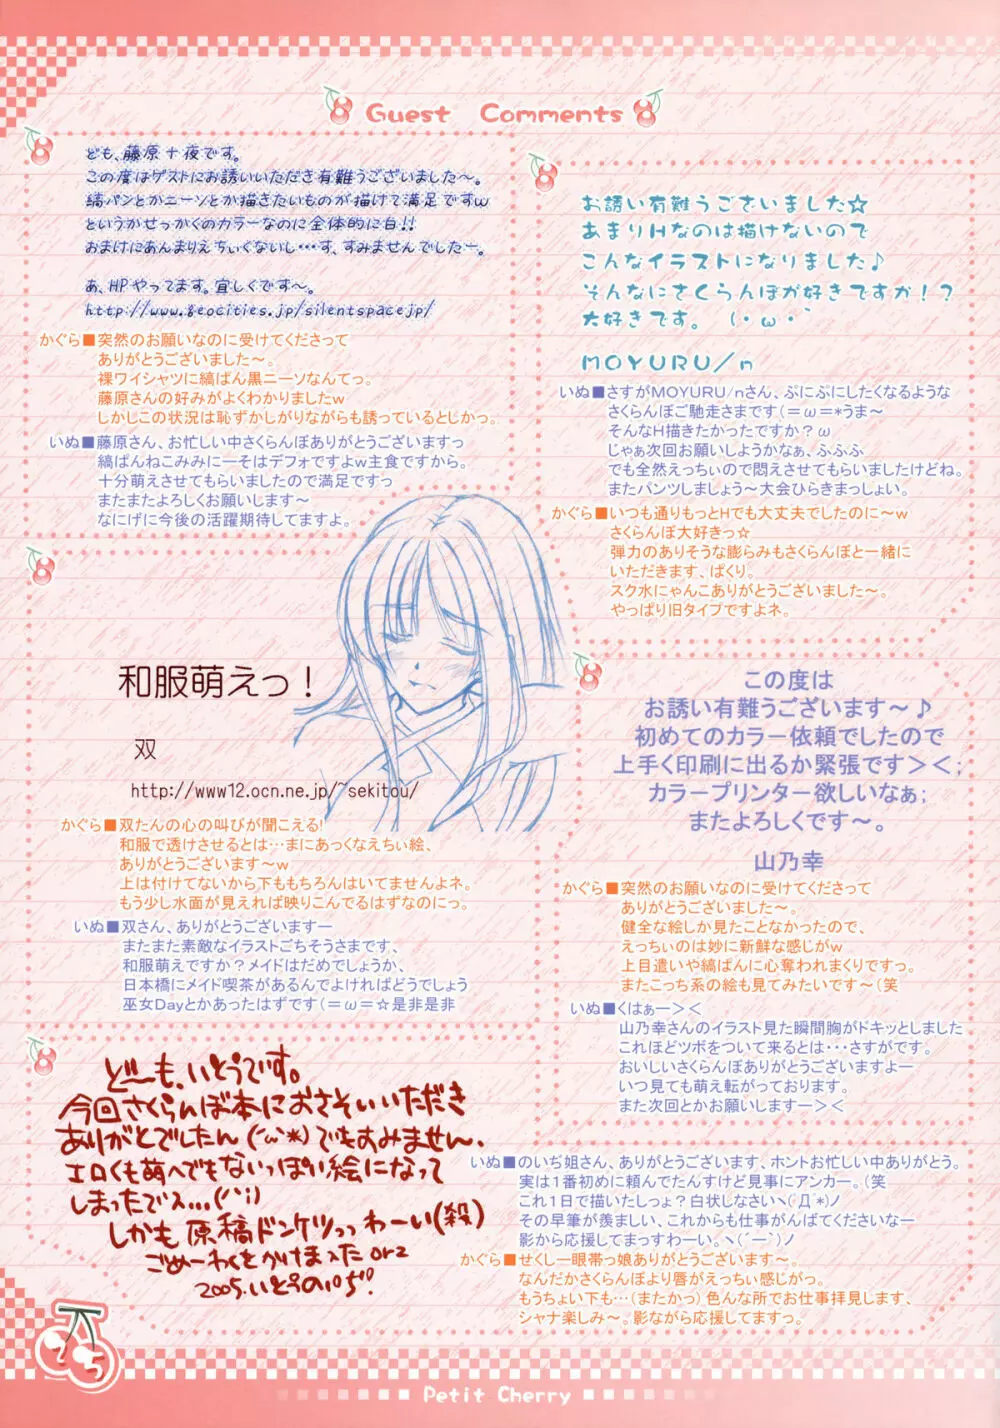 Guest Comments
ども、藤原十夜です。
この度はゲストにお誘いいただき有難うございました～。
縞パンとかニーソとか描きたいものが描けて満足ですw
というかせっかくのカラーなのに全体的に白!!
おまけにあんまりえちぃくないし…す、すみませんでしたー。
あ、HPやってます。宜しくです～。
http://www.geocities.jp/silentspacejp/
かぐら■突然のお願いなのに受けてくださって
ありがとうございました～。
裸ワイシャツに縞ぱん黒ニーソなんてっ。
藤原さんの好みがよくわかりましたw
しかしこの状況は恥ずかしがりながらも誘っているとしかっ。
いぬ■藤原さん、お忙しい中さくらんぼありがとうございますっ
縞ぱんねこみみにーそはデフォですよw主食ですから。
十分萌えさせてもらいましたので満足ですっ
またまたよろしくお願いします～
なにげに今後の活躍期待してますよ。
お誘い有難うございました☆
あまりHなのは描けないので
こんなイラストになりました♪
そんなにさくらんぼが好きですか！？
大好きです。（・ω・｀
MOYURU/n
いぬ■さすがMOYURU/nさん、ぷにぷにしたくなるような
さくらんぼご馳走さまです(＝ω＝*うま～
そんなH描きたかったですか？ω
じゃぁ次回お願いしようかなぁ、ふふふ
でも全然えっちぃので悶えさせてもらいましたけどね。
またパンツしましょう～大会ひらきまっしょい。
かぐら■いつも通りもっとHでも大丈夫でしたのに～w
さくらんぼ大好きっ☆
弾力のありそうな膨らみもさくらんぼと一緒に
いただきます、ぱくり。
スク水にゃんこありがとうございました～。
やっぱり旧タイプですよネ。
和服萌えっ！
双
http://www12.ocn.ne.jp/~sekitou/
かぐら■双たんの心の叫びが聞こえる!
和服で透けさせるとは…まにあっくなえちぃ絵、
ありがとうございます～w
上は付けてないから下ももちろんはいてませんよネ。
もう少し水面が見えれば映りこんでるはずなのにっ。
いぬ■双さん、ありがとうございますー
またまた素敵なイラストごちそうさまです、
和服萌えですか？メイドはだめでしょうか、
日本橋にメイド喫茶があるんでよければどうでしょう
巫女Dayとかあったはずです(＝ω＝☆是非是非
この度は
お誘い有難うございます～♪
初めてのカラー依頼でしたので
上手く印刷に出るか緊張です＞＜;
カラープリンター欲しいなぁ;
またよろしくです～。
山乃幸
かぐら■突然のお願いなのに受けてくださって
ありがとうございました～。
健全な絵しか見たことなかったので、
えっちぃのは妙に新鮮な感じがw
上目遣いや縞ぱんに心奪われまくりですっ。
またこっち系の絵も見てみたいです～(笑
いぬ■くはぁー＞＜
山乃幸さんのイラスト見た瞬間胸がドキッとしました
これほどツボをついて来るとは・・・さすがです。
おいしいさくらんぼありがとうございますよー
いつ見ても萌え転がっております。
また次回とかお願いしますー＞＜
ど～も、いとうです。
今回さくらんぼ本におさそいいただき
ありがとでしたん(´ω`*)でもすみません、
エロくも萌へでもないっぽい絵になって
しまったでス...(^^;)
しかも原稿ドンケツっっわーい(殺)
ごめーわくをかけまった orz
2005.いとうのいぢ!
いぬ■のいぢ姐さん、ありがとうございます、ホントお忙しい中ありがとう。
実は１番初めに頼んでたんすけど見事にアンカー。(笑
これ１日で描いたしょ？白状しなさいヽ(´Д`*)ノ
その早筆が羨ましい、これからも仕事がんばてくださいなー
影から応援してまっすわーい。ヽ(´ー｀)ノ
かぐら■せくしー眼帯っ娘ありがとうございます～。
なんだかさくらんぼより唇がえっちぃ感じがっ。
もうちょい下も…(またかっ) 色んな所でお仕事拝見します、
シャナ楽しみ～。影ながら応援してますっ。
25
Petit Cherry